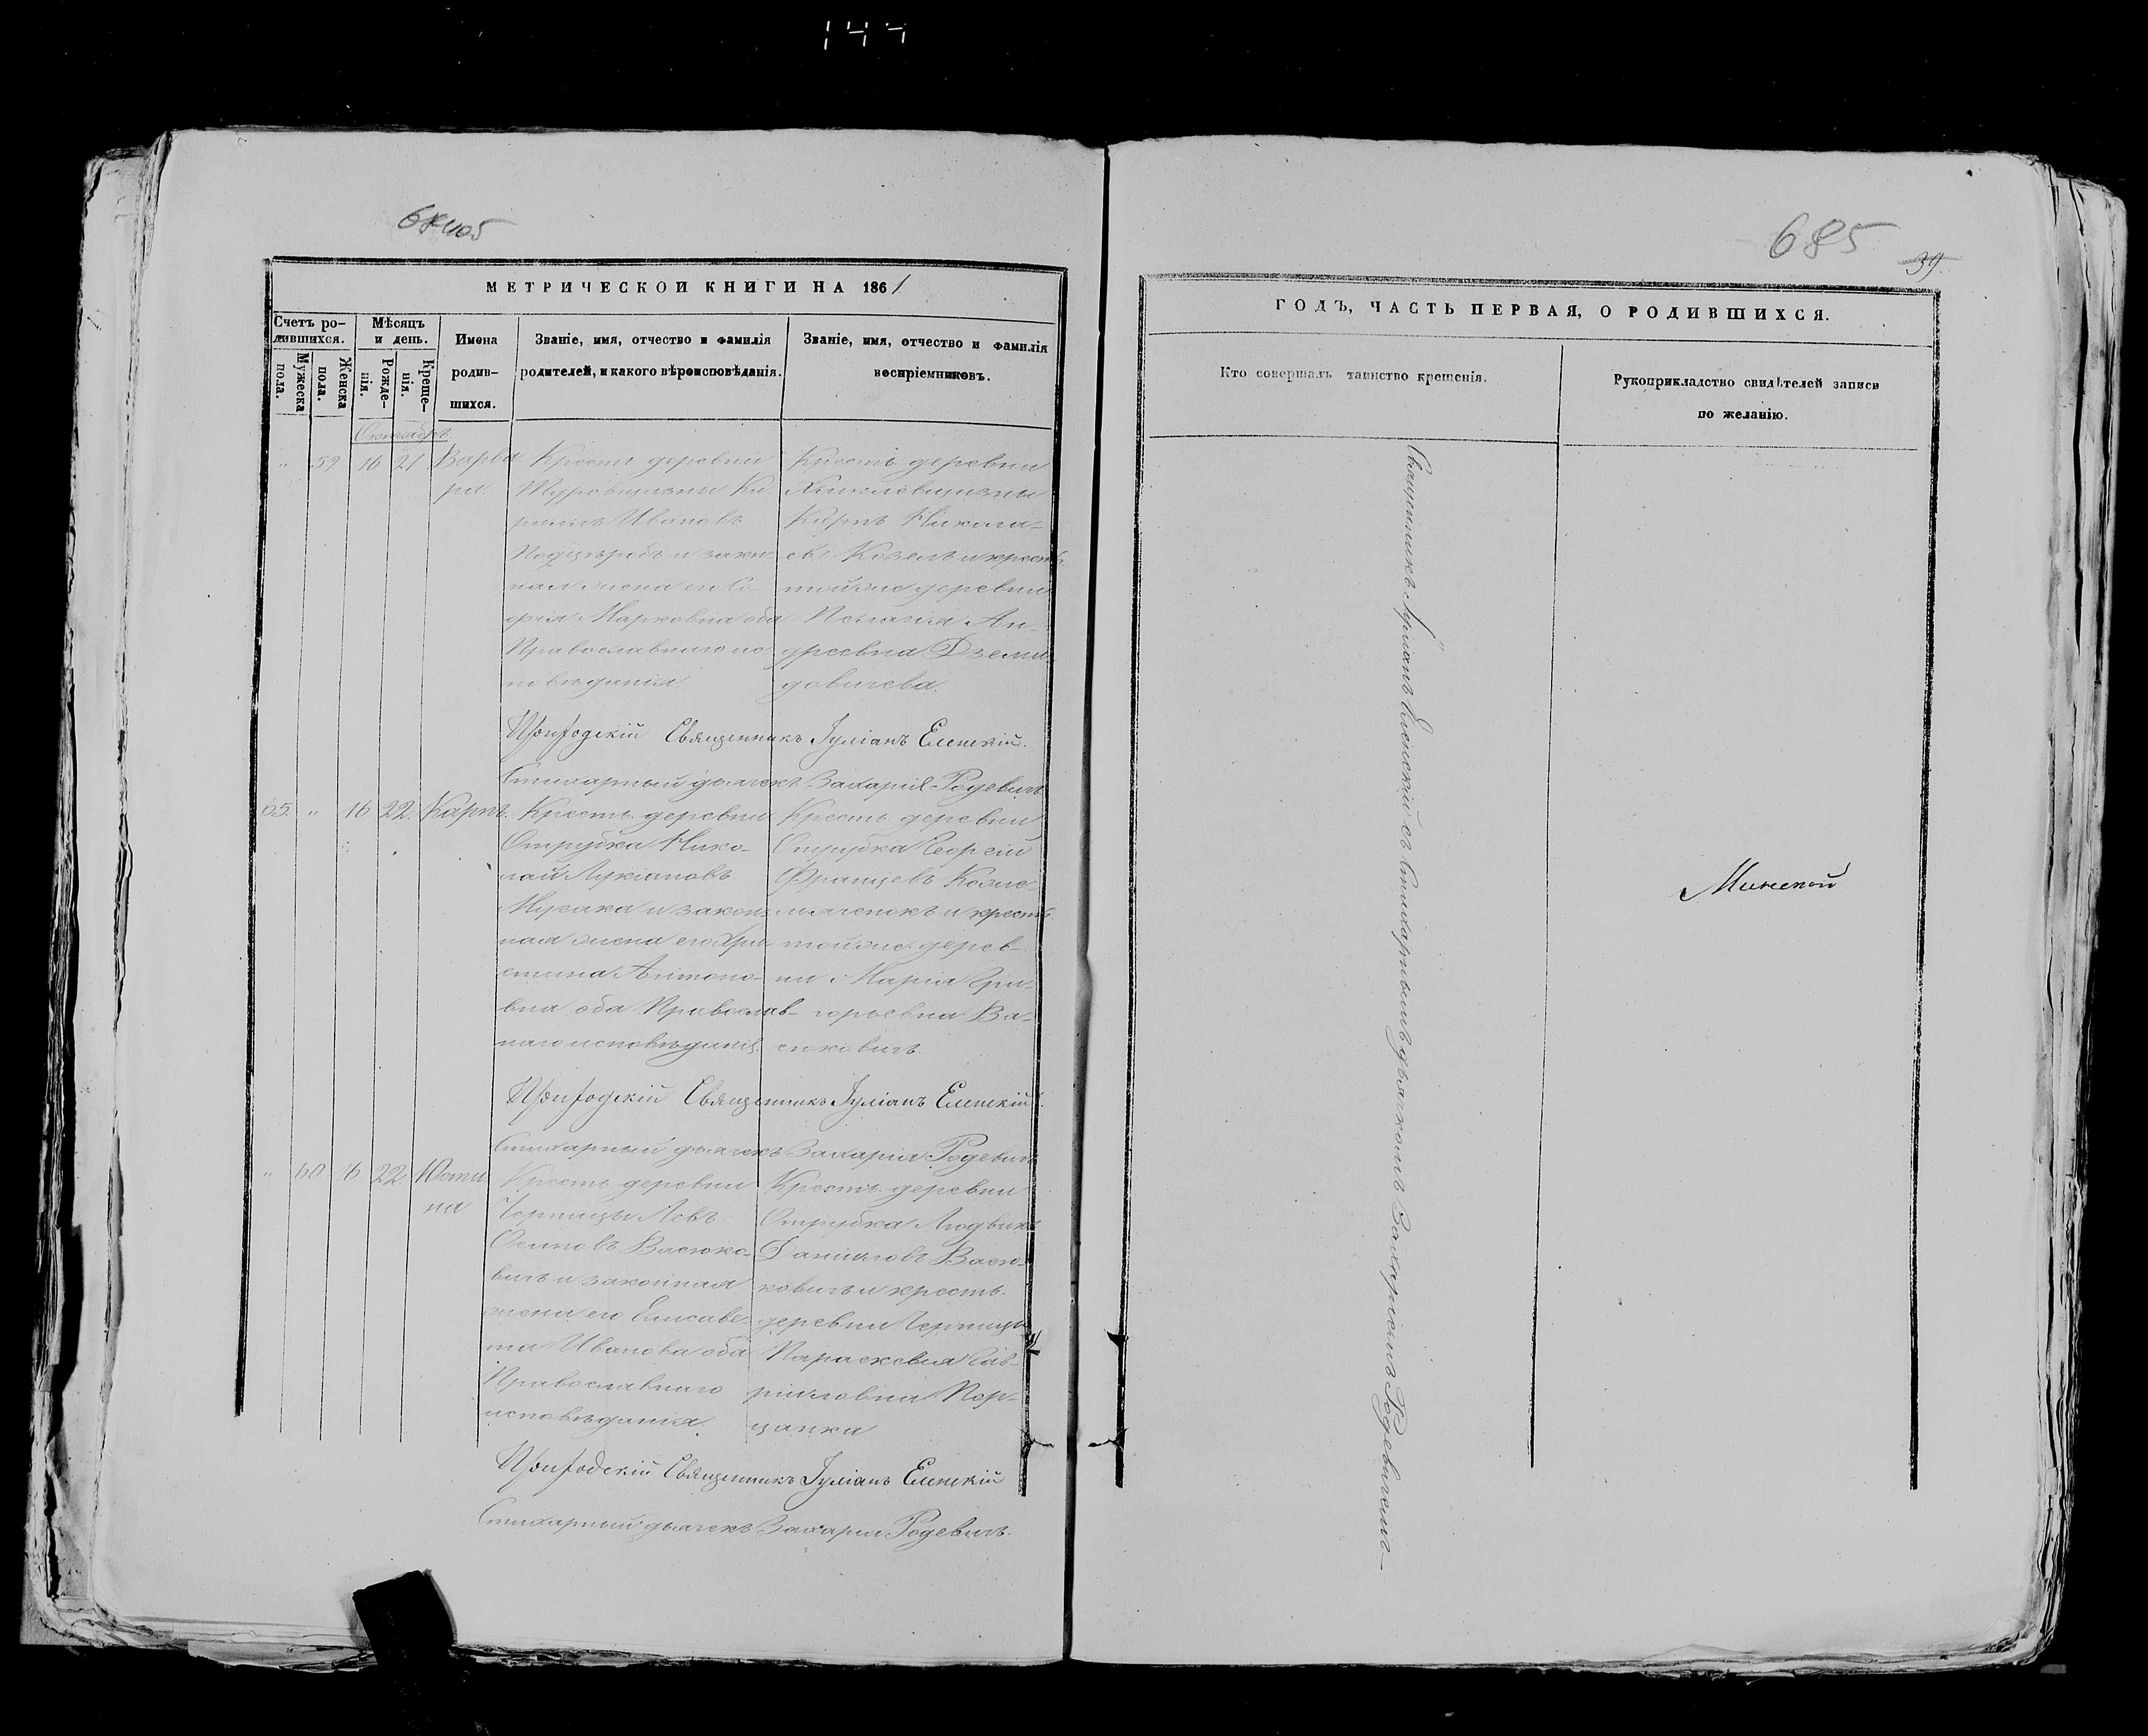 685
39
МЕТРИЧЕСКОЙ КНИГИ НА 1861
Счетъ ро-
дившихся.
Мужеска
пола.
Женска
пола.
Мѣсяцъ
и день.
Рожде-
нія.
Креще-
нія.
Имена
родив-
шихся.
Званіе, имя, отчество и фамилія
родителей, и какого вѣроисповѣданія.
Званіе, имя, отчество и фамилія
воспріемниковъ.
" 59 16 21 Варва
ра.
Крестъ деревни
риллъ Ивановъ
и закон
ная жена его Со-
фія Марковна оба
Православнаго ис
повѣданія.
Крестъ. деревни
Карпъ Никола-
евъ Козелъ и крестъ
той же деревни
Пелагія Ан-
дреевна Дземи
довичева.
Приходскій Священникъ Іуліанъ Еленскій.
Стихарный дьячекъ Захарія Родевичъ
65. " 16 22. Карпъ.
Крестъ. деревни
Отрубка Нико-
лай Лукіановъ
и закон
ная жена его Хри-
стина Антоно-
вна оба Православ-
наго исповѣданія.
Крестъ деревни
Отрубка Георгій
Францевъ
и крестъ.
той же дерев-
ни Марія Гри-
горьевна Ва-
сюковичъ.
Приходскій Священникъ Іуліанъ Еленскій.
Стихарный дьячекъ Захарія Родевичъ
" 60 16 22 Юсти
на
Крестъ деревни
Черницы Левъ
Осиповъ Васюко-
вичъ и законная
жена его Елисаве-
та Иванова оба
Православнаго
исповѣданія.
Крестъ. деревни
Отрубка Людвикъ
Даниловъ Васю-
ковичъ и крестъ.
деревни Черницы
Параскевія Гав-
риловна Пор-
цанка
Приходскій Священникъ Іуліанъ Еленскій
Стихарный дьячекъ Захарія Родевичъ.
ГОДЪ, ЧАСТЬ ПЕРВАЯ, О РОДИВШИХСЯ.
Кто совершалъ таинство крещенія.
Рукоприкладство свидѣтелей записи
по желанію.
Священникъ Іуліанъ Еленскій съ стихарнымъ дьячкомъ Захаріемъ Родевичемъ
Минской